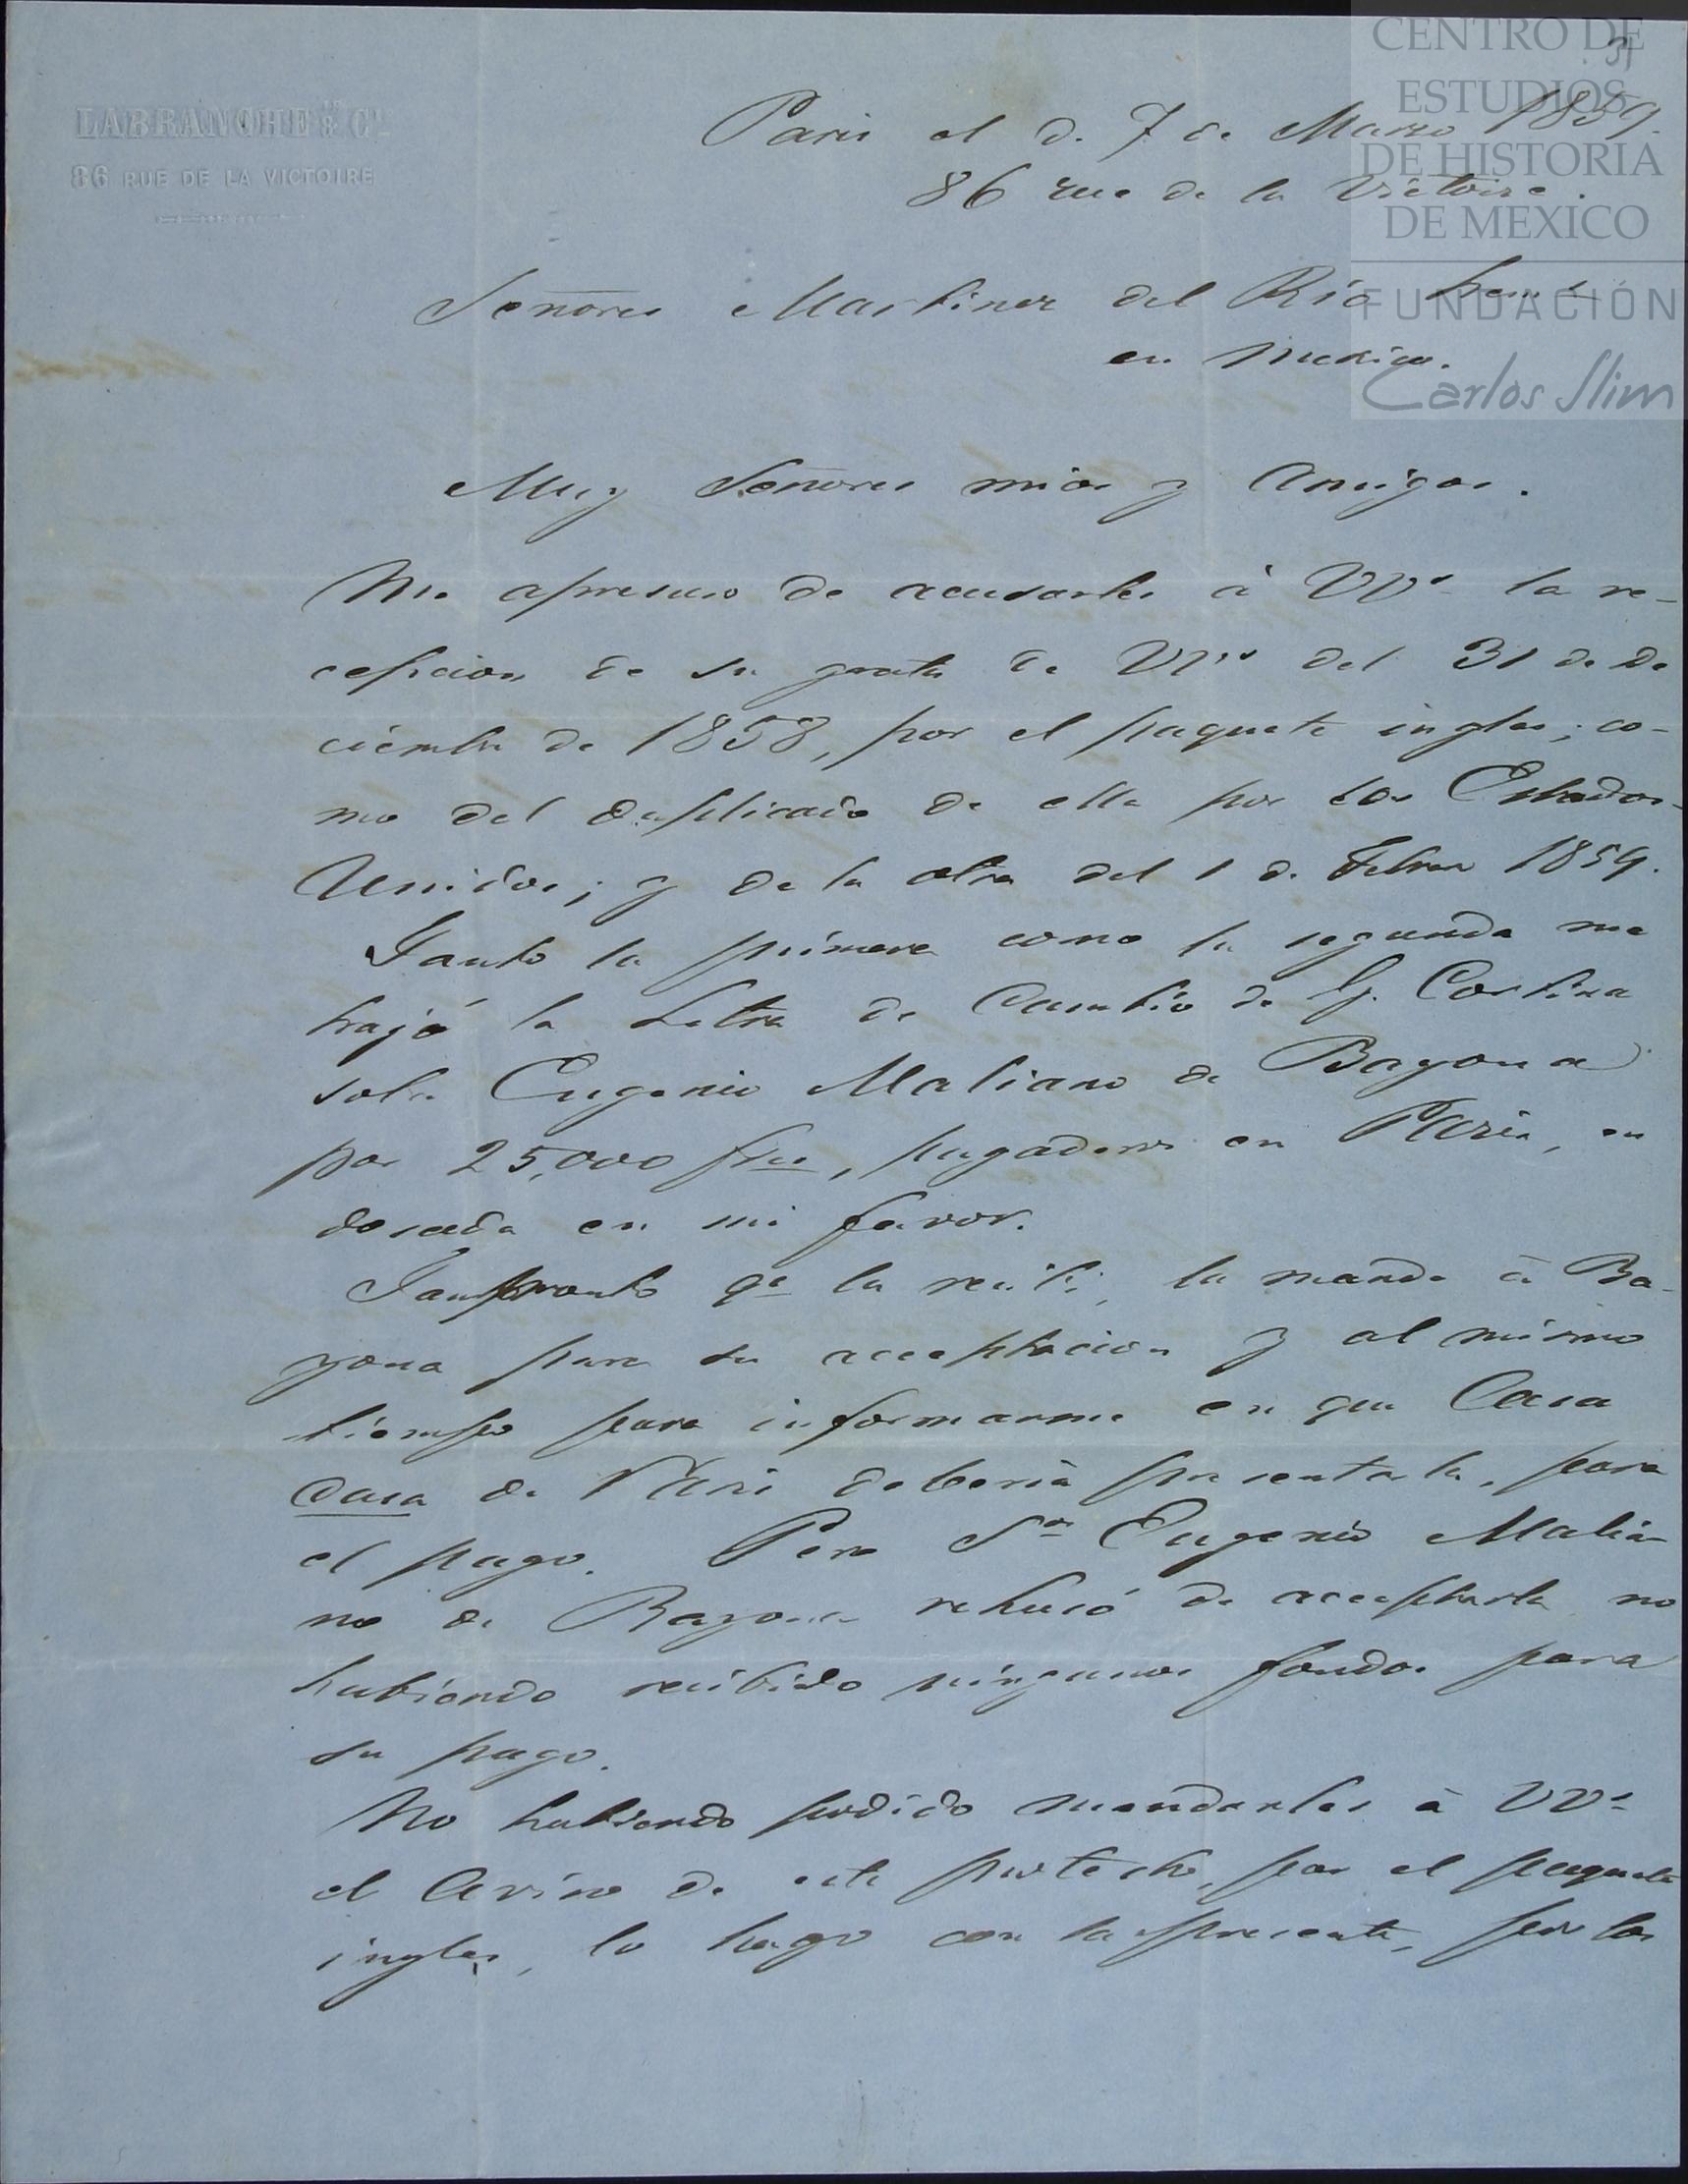 CENTRO DE
ESTUDIOS
DE HISTORIA
DE MEXICO
FUNDACIÓN
Carlos Slim
LABRANCHE & Cie
86 RUE DE LA VICTOIRE
Paris el d. 7 de Marzo 1859.
86 rue de la Victoire.
Señores Martinez del Rio herms
en Mexico.
Muy Señores mios y Amigos.
Me apresuro de acusarles à VVs la re-
cepcion de su grata de VVs del 31 de De
ciembre de 1858, por el paquete ingles; co-
mo del duplicado de ella por los Estados-
Unidos; y de la otra del 1 d. Febrer 1859.
Tanto la primera como la segunda me
trajó la Letra de Cambio de G. Cortina
sobr. Eugenio Maliano de Bayona
por 25,000 frcs, pagaderos en Paris, en
dosada en mi favor.
Tanpronto qe la recibi, la mande à Ba-
yona para su acceptacion y al mismo
tiempo para informarme en que Casa
Casa de Paris deberia presentarla, para
el pago. Pero Sor Eugenio Malia-
no de Bayona rehusó de acceptarla no
habiendo recibido ningunos fondos para
su pago.
No habiendo podido mandarles à VVs
el Aviso de este protesto, por el paquete
ingles, lo hago con la presente, por los